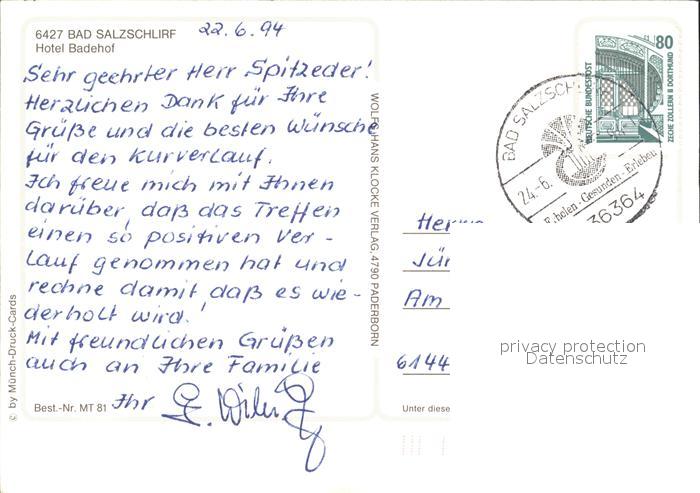 6427 BAD SALZSCHLIRF
Hotel Badehof
22.6.94
Sehr geehrter Herr Spitzeder!
Herzlichen Dank für Ihre
Grüße und die besten Wünsche
für den Kurverlauf.
Ich freue mich mit Ihnen
darüber, daß das Treffen
einen so positiven Ver-
lauf genommen hat und
rechne damit, daß es wie-
derholt wird!
Mit freundlichen Grüßen
auch an Ihre Familie
Ihr
Best.-Nr. MT 81
© by Münch-Druck-Cards
WOLFGHANS KLOCKE VERLAG, 4790 PADERBORN
80
DEUTSCHE BUNDESPOST
ZECHE ZOLLERN II DORTMUND
BAD SALZSCH
24.-6.
Erholen - Gesunden - Erleben
36364
Am
6144
Unter diese
privacy protection
Datenschutz